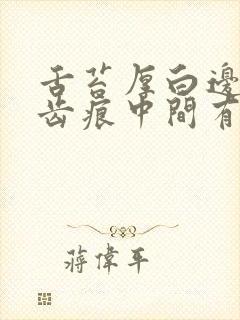 舌苔厚白邊
齿痕中間有
蔣偉平